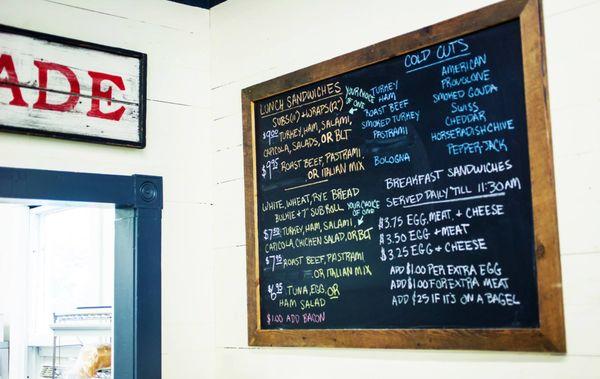 ADE
LUNCH SANDWICHES
SUBS(8") + WRAPS(12")
YOUR CHOICE
OF ONE
TURKEY, HAM, SALAMI,
CAPICOLA, SALADS, OR BLT
ROAST BEEF, PASTRAMI,
OR ITALIAN MIX
WHITE, WHEAT, RYE BREAD
BULKIE + 7" SUB ROLL
YOUR CHOICE
OF ONE
TURKEY, HAM, SALAMI,
CAPICOLA, CHICKEN SALAD, OR BLT
ROAST BEEF, PASTRAMI
OR ITALIAN MIX
$6.95 TUNA, EGG, OR
HAM SALAD
$1.00 ADD BACON
COLD CUTS
TURKEY
HAM
ROAST BEEF
SMOKED TURKEY
PASTRAMI
BOLOGNA
AMERICAN
PROVOLONE
SMOKED GOUDA
SWISS
CHEDDAR
HORSERADISH CHIVE
PEPPER-JACK
BREAKFAST SANDWICHES
SERVED DAILY 'TILL 11:30AM
$3.75 EGG, MEAT, + CHEESE
$3.50 EGG + MEAT
$3.25 EGG + CHEESE
ADD $1.00 PER EXTRA EGG
ADD $1.00 FOR EXTRA MEAT
ADD $.25 IF IT'S ON A BAGEL